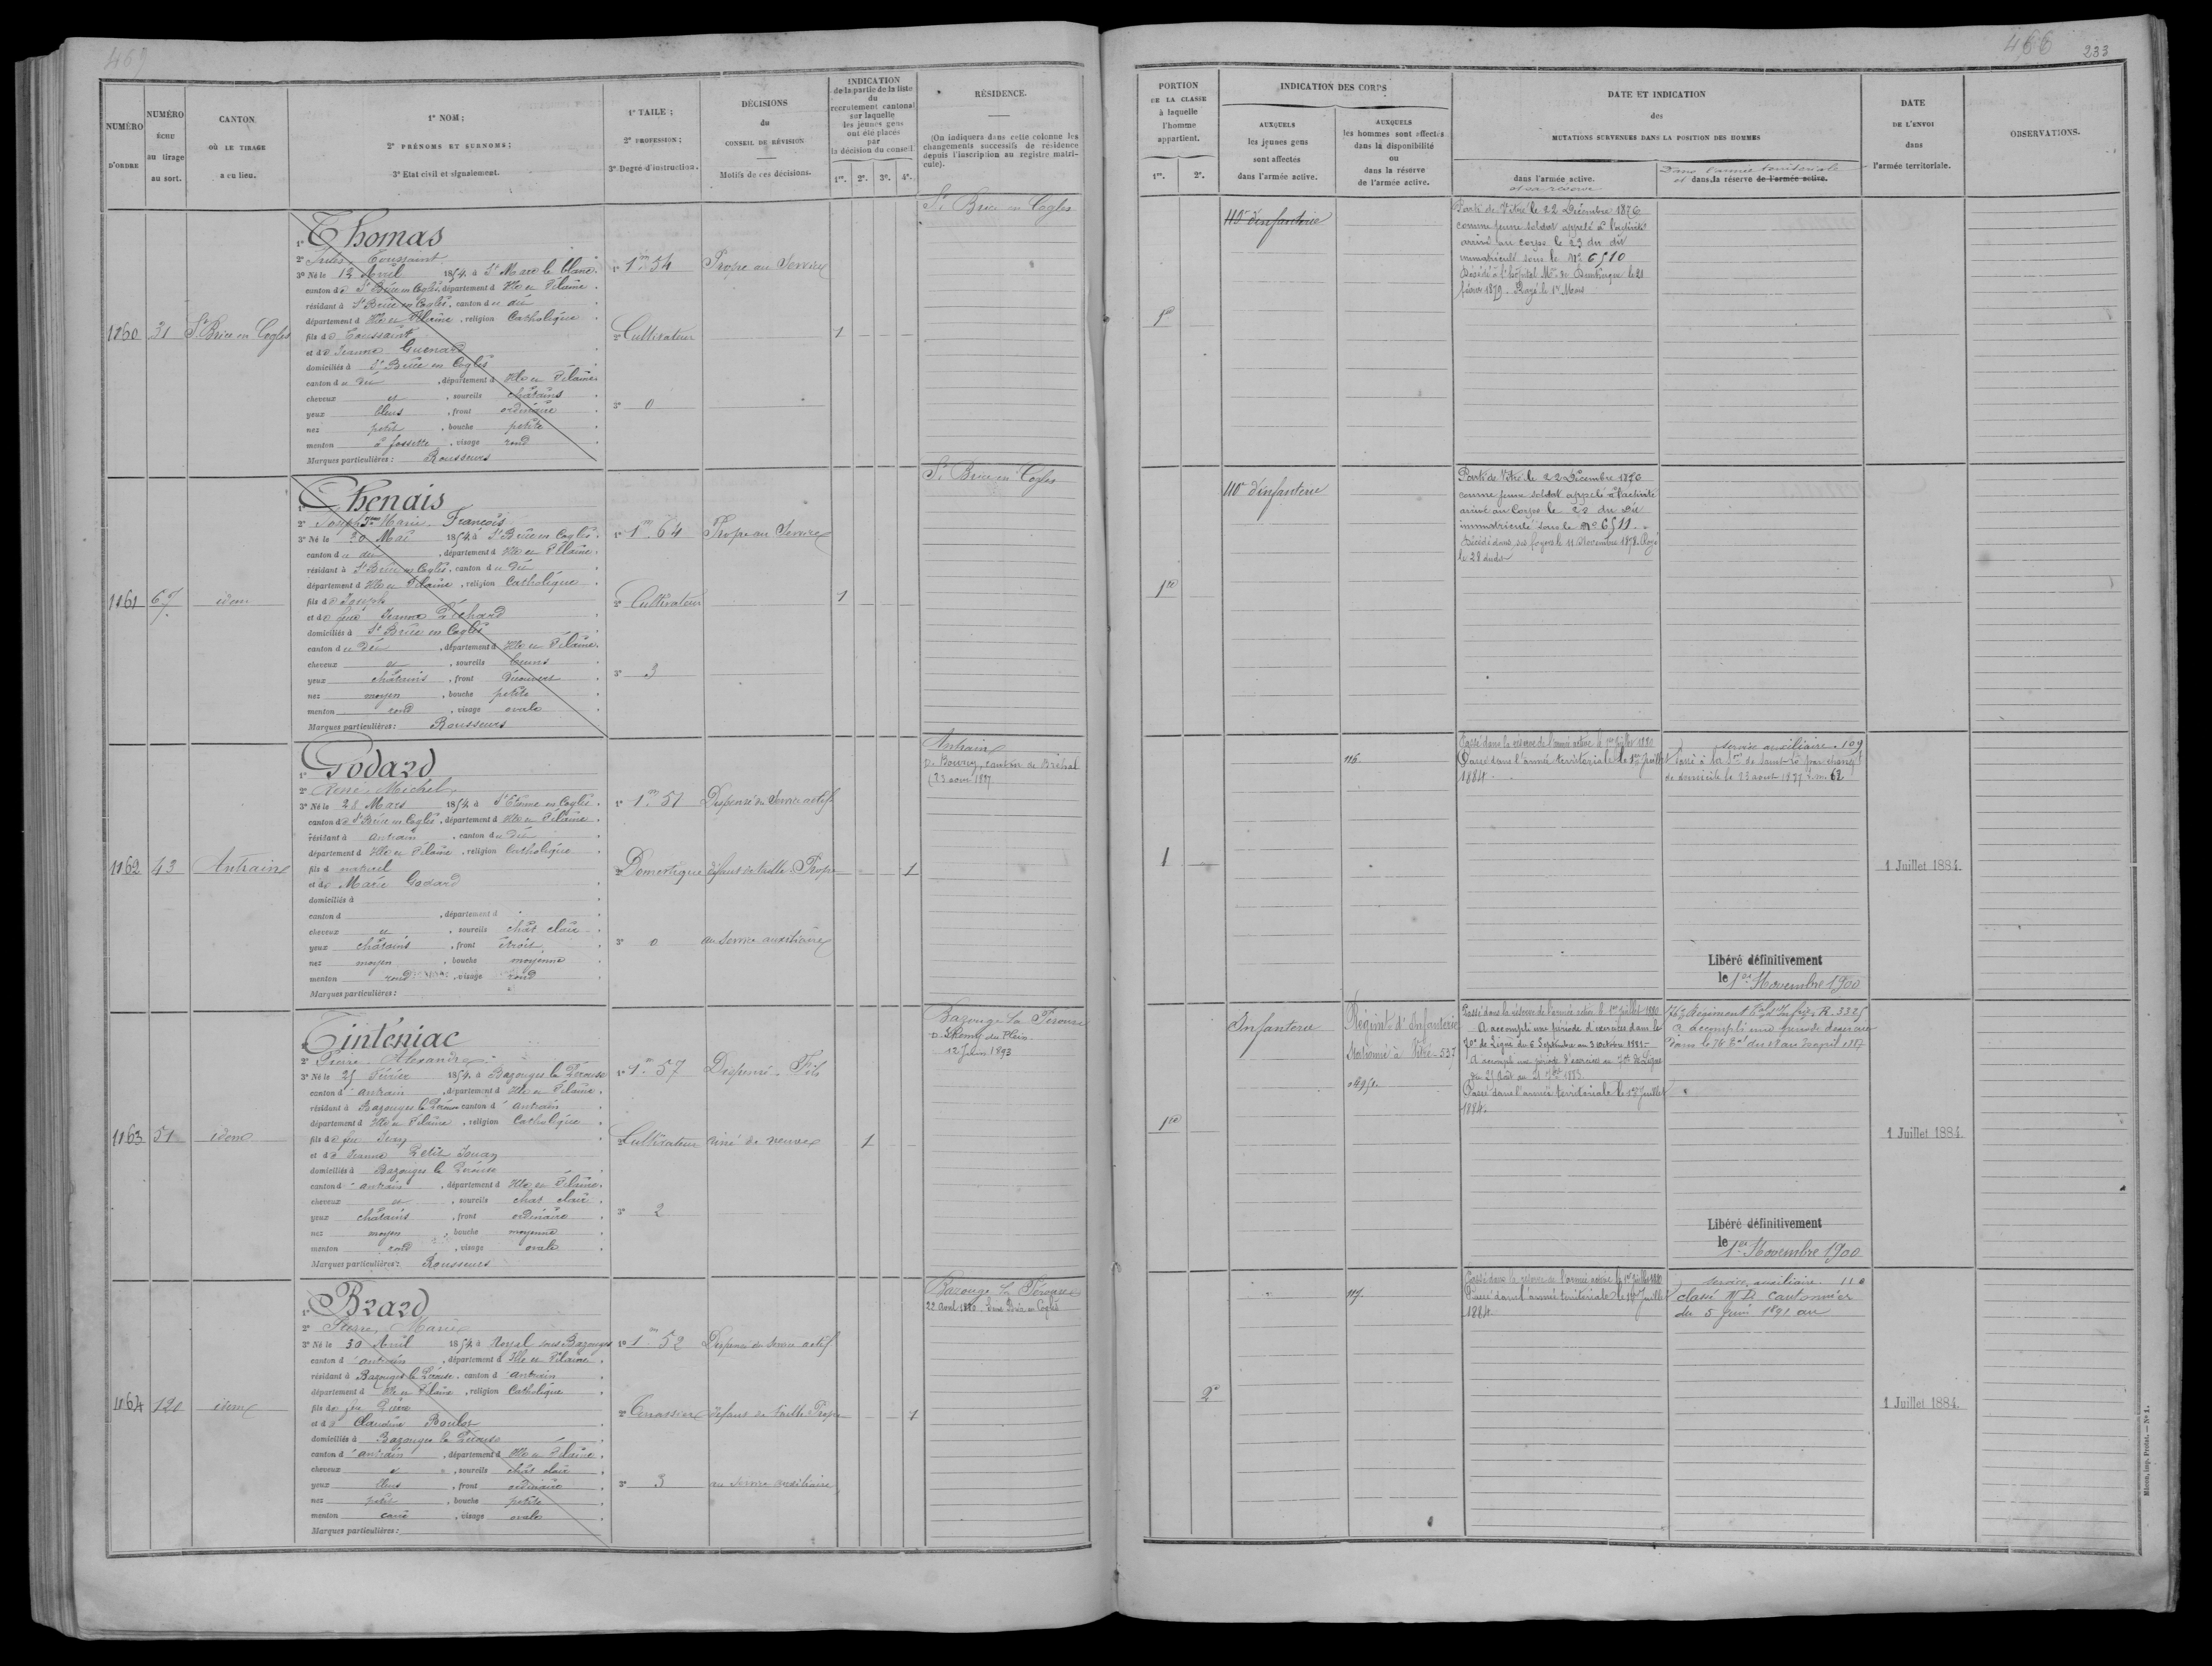 469
NUMÉRO
D'ORDRE
NUMÉRO
ÉCHU
au tirage
au sort.
CANTON
OÙ LE TIRAGE
a eu lieu.
1° NOM ;
2° PRÉNOMS ET SURNOMS ;
3° Etat civil et signalement.
1° TAILE ;
2° PROFESSION ;
3° Degré d'instruction.
DÉCISIONS
du
CONSEIL DE RÉVISION
Motifs de ces décisions.
INDICATION
de la partie de la liste
du
recrutement cantonal
sur laquelle
les jeunes gens
ont été placés
par
la décision du conseil
1re. 2e. 3e. 4e.
RÉSIDENCE.
(On indiquera dans cette colonne les
changements successifs de résidence
depuis l'inscription au registre matri-
cule).
1160
31
St Brice en Cogles
1° Thomas
2° Jules Toussaint
3° Né le 12 Avril 1854 à St Marc le blanc
canton de St Brice en Cogles, département d Ille et Vilaine
résidant à St Brice en Cogles, canton d u dit
département d Ille et Vilaine, religion Catholique
fils de Toussaint
et de Jeanne Guenard
domiciliés à St Brice en Cogles
canton d u dit, département d Ille et Vilaine
cheveux et, sourcils châtains
yeux bleus, front ordinaire
nez petit, bouche petite
menton à fossette, visage rond
Marques particulières : Rousseurs
1° 1m 54
2° Cultivateur
3° 0
Propre au Service
1
St Brice en Cogles
1161
67
idem
1° Thenais
2° Joseph Jean Marie François
3° Né le 30 Mai 1854 à St Brice en Cogles
canton d u dit, département d Ille et Vilaine
résidant à St Brice en Cogles, canton d u dit
département d Ille et Vilaine, religion Catholique
fils de Joseph
et de feue Jeanne Béchard
domiciliés à St Brice en Cogles
canton d u dit, département d Ille et Vilaine
cheveux et, sourcils bruns
yeux châtains, front découvert
nez moyen, bouche petite
menton rond, visage ovale
Marques particulières : Rousseurs
1° 1m 64
2° Cultivateur
3° 3
Propre au Service
1
St Brice en Cogles
1162
43
Antrain
1° Godard
2° René Michel
3° Né le 28 Mars 1854 à St Etienne en Cogles
canton de St Brice en Cogles, département d Ille et Vilaine
résidant à Antrain, canton d u dit
département d Ille et Vilaine, religion Catholique
fils d naturel
et de Marie Godard
domiciliés à
canton d, département d
cheveux et, sourcils chât clair
yeux châtains, front étroit
nez moyen, bouche moyenne
menton rond, visage rond
Marques particulières :
1° 1m 51
2° Domestique
3° 0
Dispensé du Service actif
défaut de taille. Propre
au service auxiliaire
1
Antrain
D. Bourey, canton de Bréhal
(23 aout 1887
1163
51
idem
1° Tinténiac
2° Pierre Alexandre
3° Né le 25 Février 1854 à Bazouges la Pérouse
canton d' antrain, département d Ille et Vilaine
résidant à Bazouges la Pérouse canton d' antrain
département d Ille et Vilaine, religion Catholique
fils de feu Jean
et de Jeanne Petit Jouan
domiciliés à Bazouges la Pérouse
canton d' antrain, département d Ille et Vilaine
cheveux et, sourcils chat clair
yeux châtains, front ordinaire
nez moyen, bouche moyenne
menton rond, visage ovale
Marques particulières : Rousseurs
1° 1m 57
2° Cultivateur
3° 2
Dispensé. Fils
ainé de veuve
1
Bazouge la Perouse
D. St Remy du Plain
12 Juin 1893
1164
120
idem
1° Brard
2° Pierre Marie
3° Né le 30 Avril 1854 à Noyal sous Bazouges
canton d' antrain, département d Ille et Vilaine
résidant à Bazouges la Pérouse, canton d' antrain
département d Ille et Vilaine, religion Catholique
fils de feu Pierre
et de Claudine Boulot
domiciliés à Bazouges la Pérouse
canton d' antrain, département d Ille et Vilaine
cheveux et, sourcils chât clair
yeux bleus, front ordinaire
nez petit, bouche petite
menton carré, visage ovale
Marques particulières :
1° 1m 52
2° Terrassier
3° 3
Dispensé du Service actif
défaut de taille. Propre
au service auxiliaire
1
Bazouge la Perouse
22 Avril 1880. Saint Brice en Cogles
466
233
PORTION
DE LA CLASSE
à laquelle
l'homme
appartient.
1re. 2e.
INDICATION DES CORPS
AUXQUELS
les jeunes gens
sont affectés
dans l'armée active.
AUXQUELS
les hommes sont affectés
dans la disponibilité
ou
dans la réserve
de l'armée active.
DATE ET INDICATION
des
MUTATIONS SURVENUES DANS LA POSITION DES HOMMES
dans l'armée active.
et sa réserve
Dans l'armée territoriale
et dans la réserve de l'armée active.
DATE
DE L'ENVOI
dans
l'armée territoriale.
OBSERVATIONS.
1re
110e d'infanterie
Parti de Vitré le 22 Décembre 1876
comme jeune soldat appelé à l'activité
arrivé au corps le 23 du dit
immatriculé sous le No 6510
Décédé à l'hôpital Mre de Dunkerque le 21
février 1879. Rayé le 1er Mars
1re
110e d'infanterie
Parti de Vitré le 22 Décembre 1876
comme jeune soldat appelé à l'activité
arrivé au Corps le 23 du dit
immatriculé sous le No 6511
Décédé dans ses foyers le 11 Novembre 1878. Rayé
le 28 dudit
1
116
Passé dans la réserve de l'armée active le 1er Juillet 1880
Passé dans l'armée territoriale le 1er Juillet
1884
service auxiliaire. 109
Passé à la Son de Saint-Lô par changt
de domicile le 23 aout 1887 no 62
Libéré définitivement
le 1er Novembre 1900
1 Juillet 1884.
1re
Infanterie
Régimt d'Infanterie
Stationné à Vitré - 537
Passé dans la réserve de l'armée active le 1er Juillet 1880
A accompli une période d'exercices dans le
70e de Ligne du 6 Septembre au 3 Octobre 1881
A accompli une période d'exercice au 70e de Ligne
du 25 Août au 21 7bre 1883
Passé dans l'armée territoriale le 1er Juillet
1884.
76e Régiment Tal d'Infrie R. 3325
A accompli une période d'exercice
dans le 76 Tal du 18 au 30 avril 1887
Libéré définitivement
le 1er Novembre 1900
1 Juillet 1884.
2e
117
Passé dans la réserve de l'armée active le 1er Juillet 1880
Passé dans l'armée territoriale le 1er Juillet
1884
service auxiliaire. 110
classé N.D. Cantonnier
du 5 Juin 1891 au
1 Juillet 1884.
Mâcon, imp. Protat. — No 1.